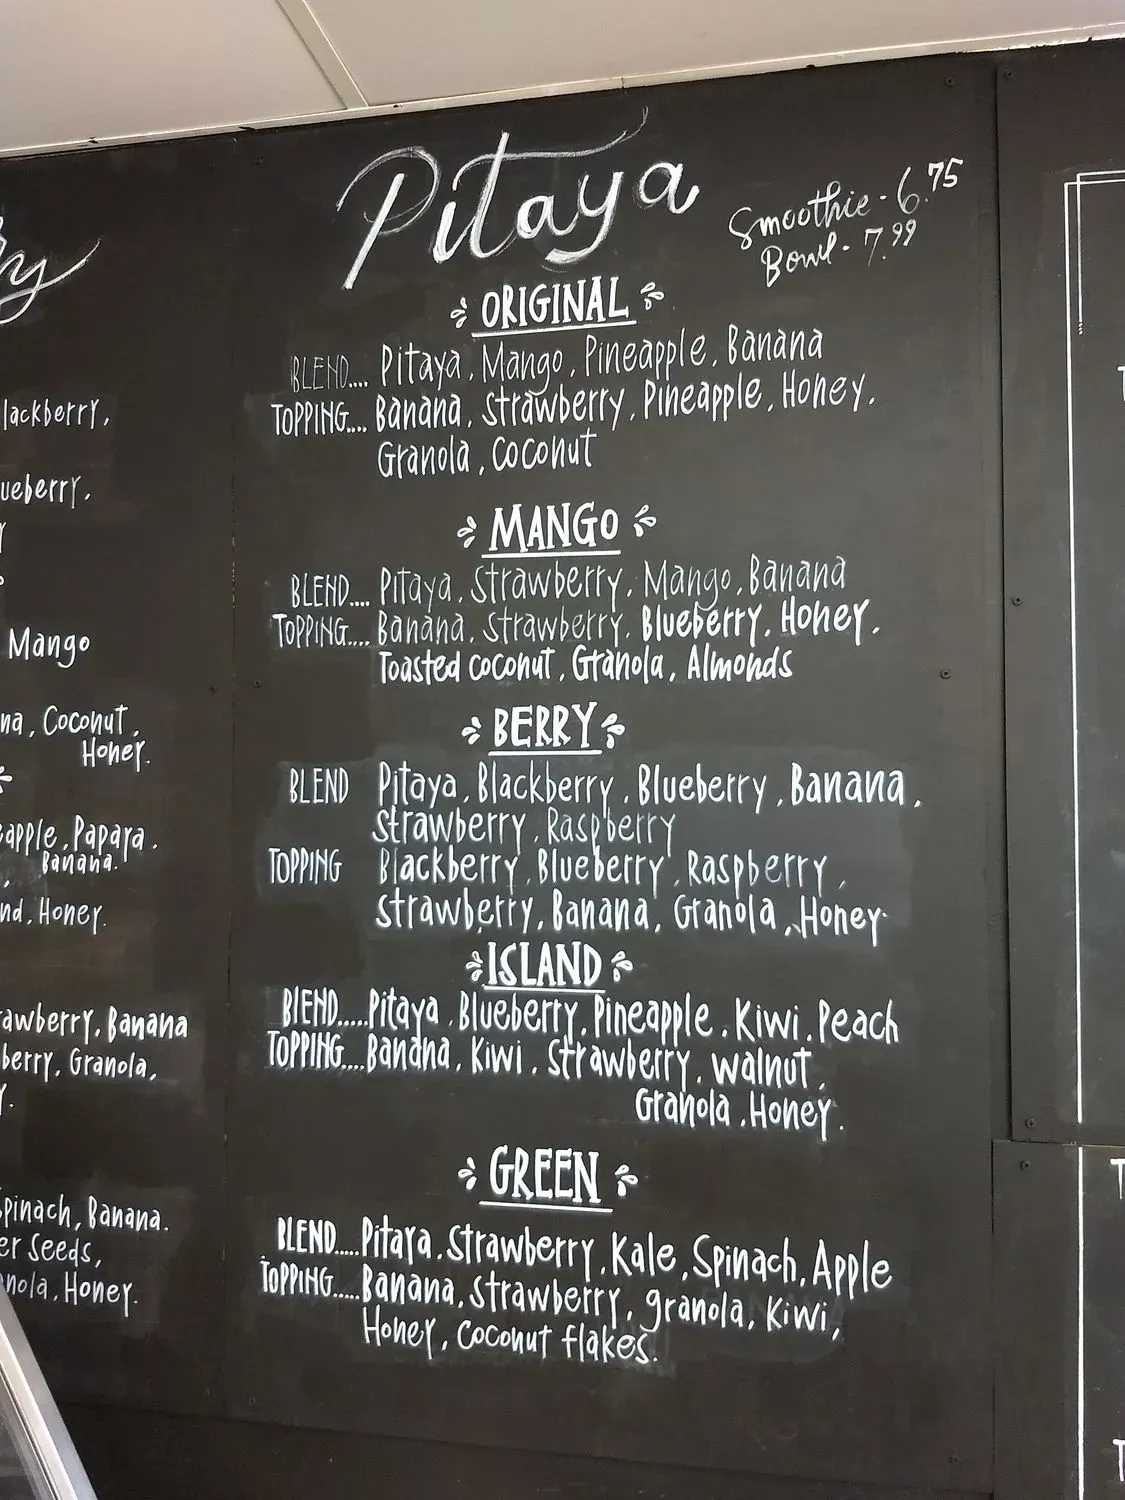 Pitaya
Smoothie - 6.75
Bowl - 7.99
ORIGINAL
BLEND.... Pitaya, Mango, Pineapple, Banana
TOPPING.... Banana, Strawberry, Pineapple, Honey,
Granola, Coconut
MANGO
BLEND.... Pitaya, Strawberry, Mango, Banana
TOPPING.... Banana, Strawberry, Blueberry, Honey,
Toasted coconut, Granola, Almonds
BERRY
BLEND Pitaya, Blackberry, Blueberry, Banana,
Strawberry, Raspberry
TOPPING Blackberry, Blueberry, Raspberry,
Strawberry, Banana, Granola, Honey.
ISLAND
BLEND.....Pitaya, Blueberry, Pineapple, Kiwi, Peach
TOPPING....Banana, Kiwi, Strawberry, walnut,
Granola, Honey.
GREEN
BLEND.....Pitaya, Strawberry, Kale, Spinach, Apple
TOPPING.....Banana, Strawberry, granola, Kiwi,
Honey, Coconut flakes.
lackberry,
ueberry,
Mango
na, Coconut,
Honey.
eapple, Papaya.
Banana.
nd, Honey.
rawberry, Banana
berry, Granola,
Spinach, Banana.
er Seeds,
nola, Honey.